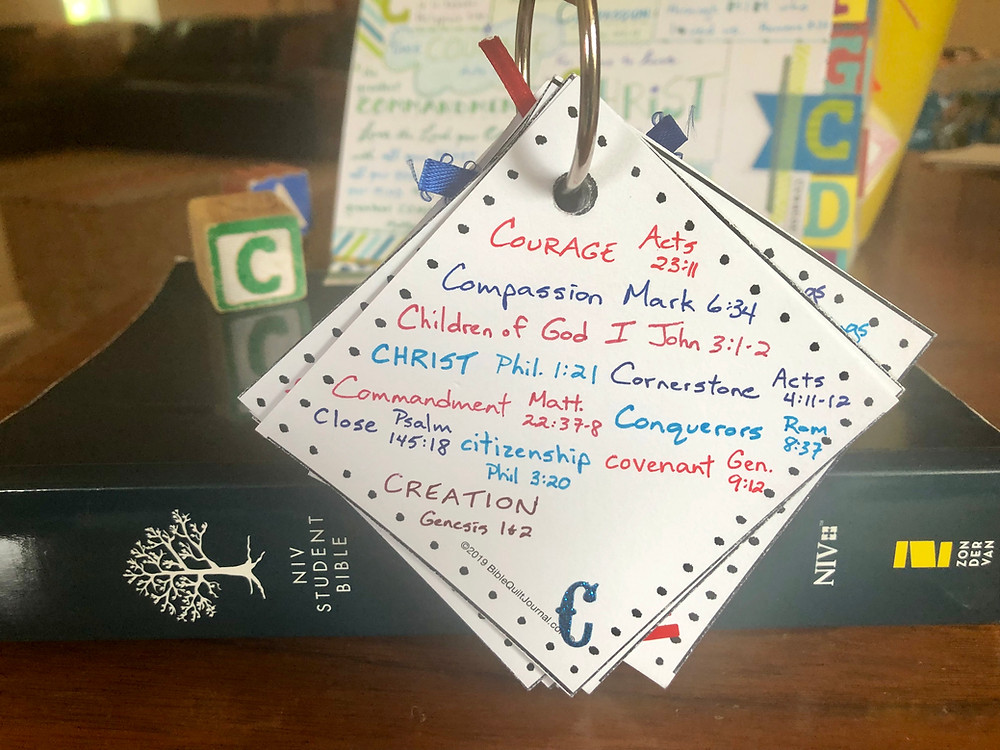 COURAGE Acts 23:11
Compassion Mark 6:34
Children of God I John 3:1-2
CHRIST Phil. 1:21
Cornerstone Acts 4:11-12
Commandment Matt. 22:37-8
Conquerors Rom 8:37
Close Psalm 145:18
citizenship Phil 3:20
covenant Gen. 9:12
CREATION
Genesis 1&2
©2019 BibleQuiltJournal.co
C
as
as
C
COMMANDMEN
CHRIST
C
D
NIV
STUDENT
BIBLE
NIV
ZON
DER
VAN